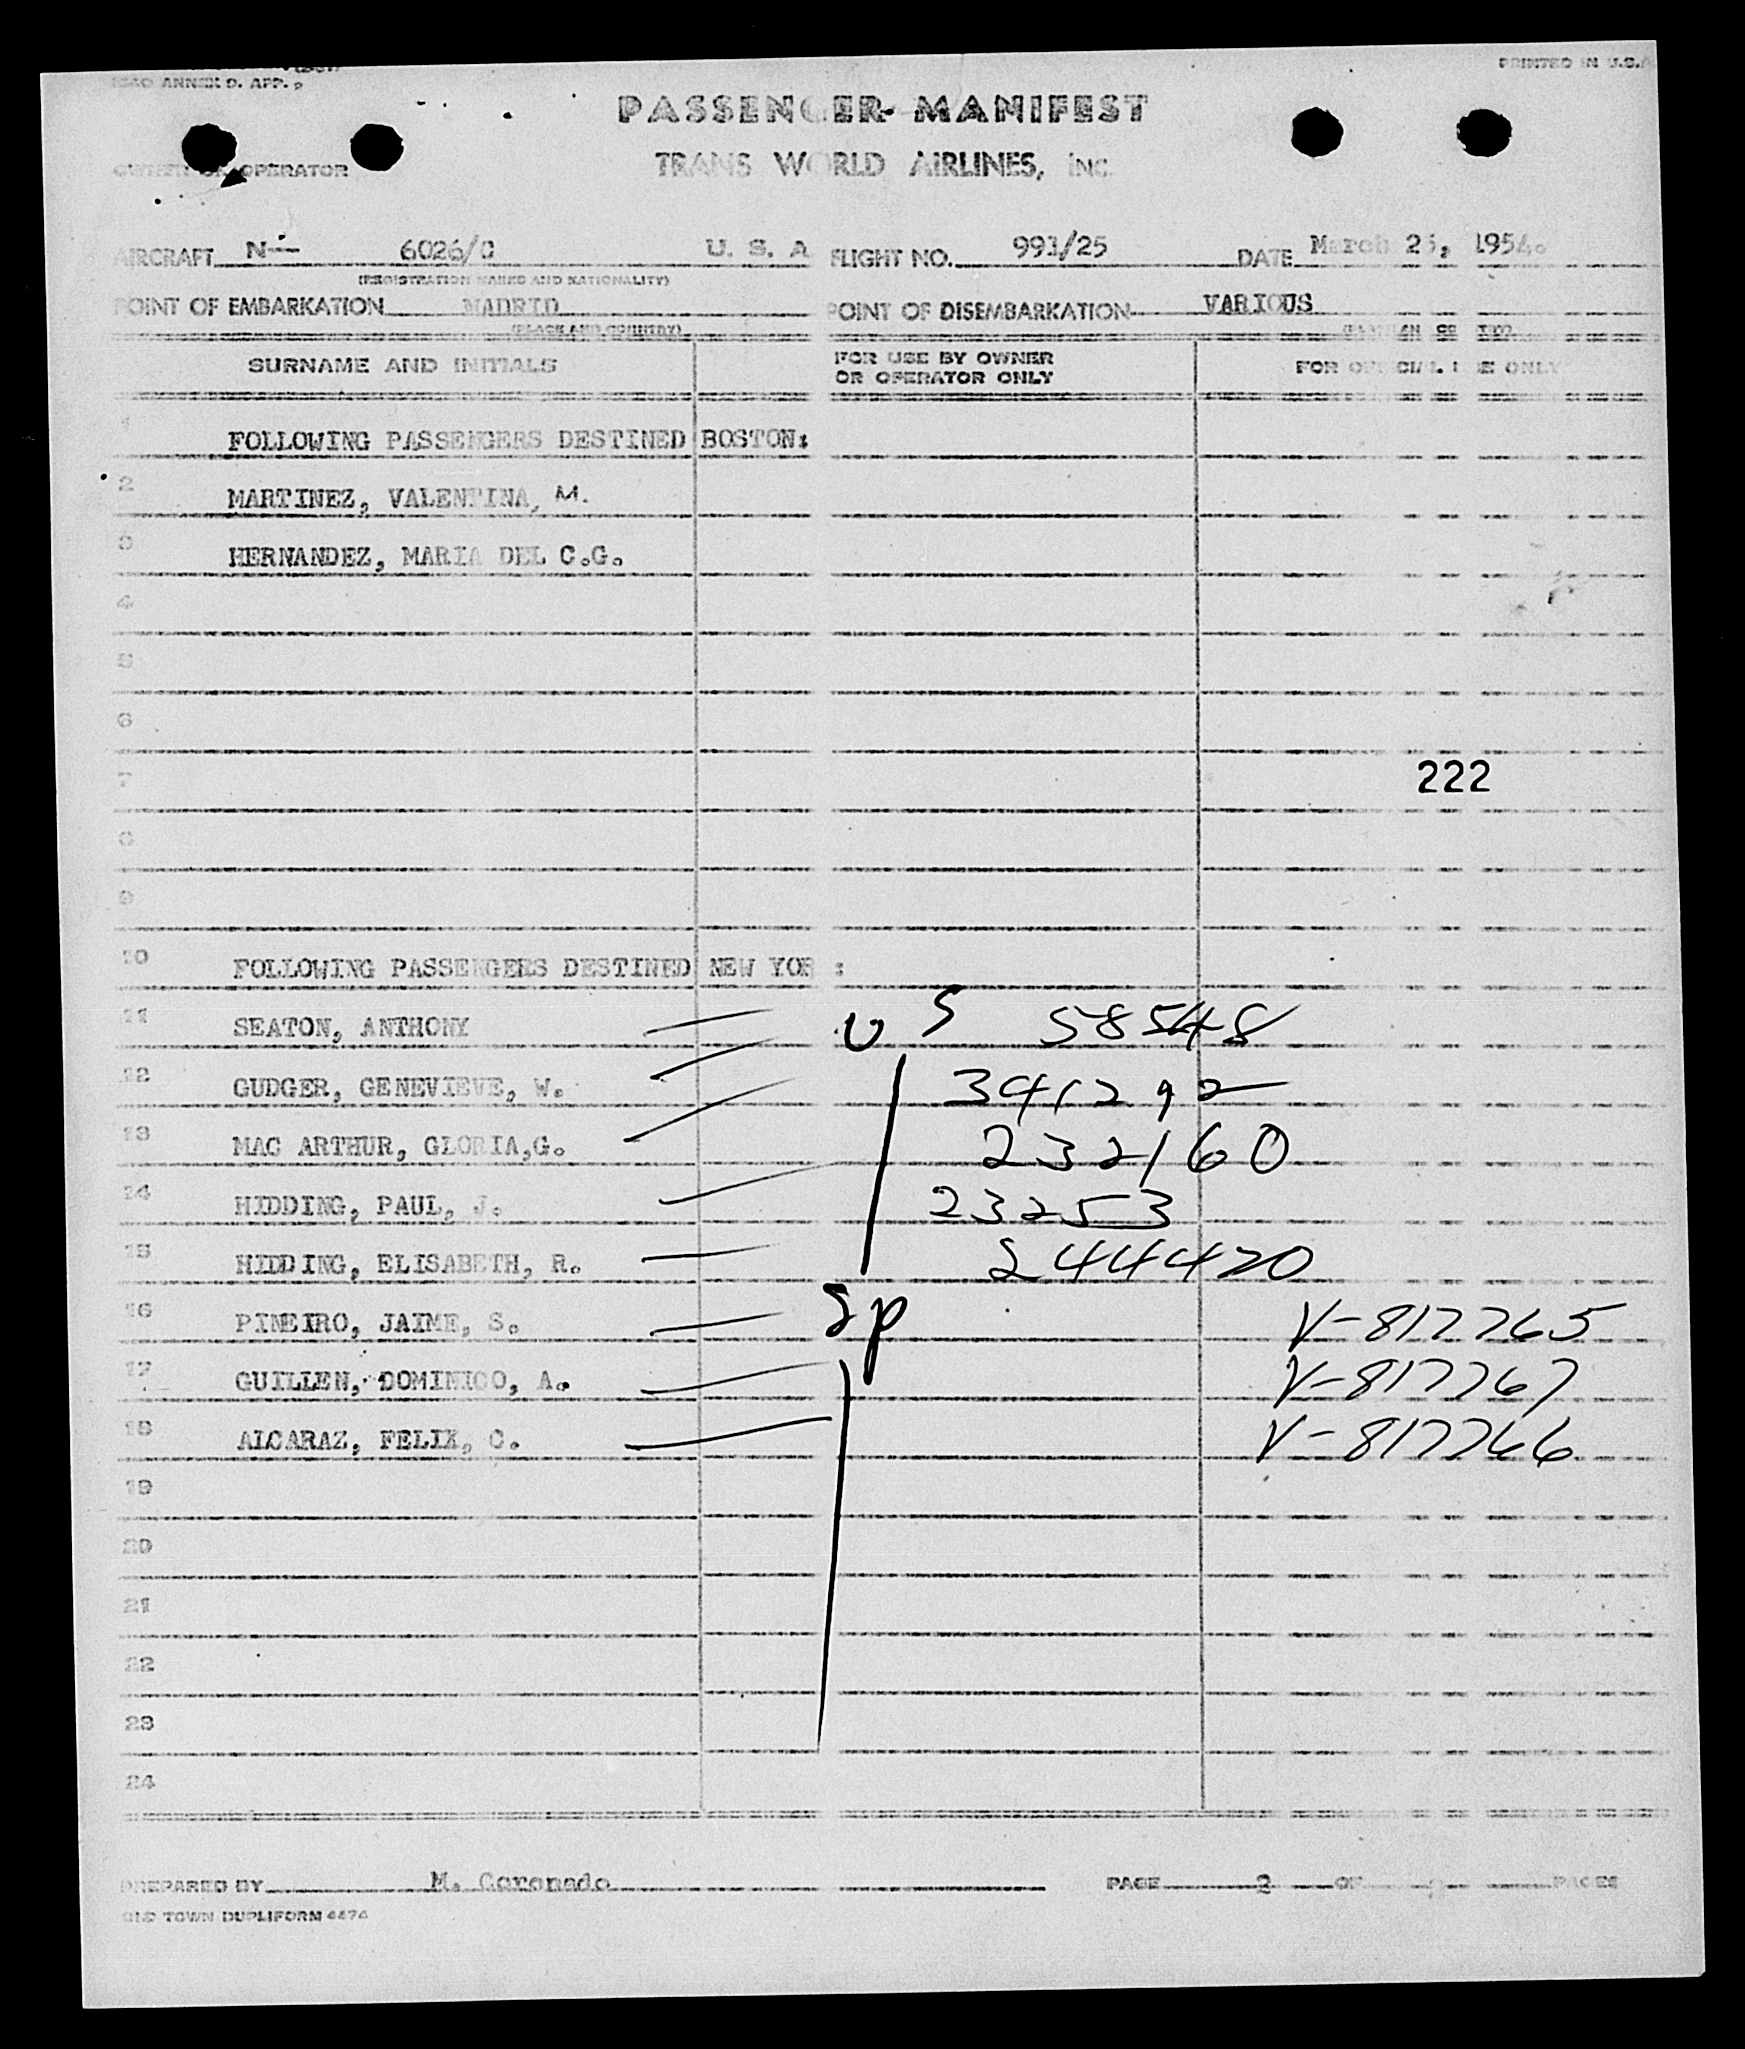 ICAO ANNEX 9. APP. 2
PRINTED IN U.S.A
PASSENGER MANIFEST
OWNER OR OPERATOR
TRANS WORLD AIRLINES, INC.
AIRCRAFT N— 6026/C U. S. A FLIGHT NO. 991/25 DATE March 25, 1954.
(REGISTRATION MARKS AND NATIONALITY)
POINT OF EMBARKATION MADRID POINT OF DISEMBARKATION VARIOUS
(PLACE AND COUNTRY)
SURNAME AND INITIALS FOR USE BY OWNER OR OPERATOR ONLY FOR OFFICIAL USE ONLY
1 FOLLOWING PASSENGERS DESTINED BOSTON:
2 MARTINEZ, VALENTINA, M.
3 HERNANDEZ, MARIA DEL C.G.
4
5
6
7 222
8
9
10 FOLLOWING PASSENGERS DESTINED NEW YOR :
11 SEATON, ANTHONY U S 58548
12 GUDGER, GENEVIEVE, W. 341292
13 MAC ARTHUR, GLORIA,G. 232160
14 HIDDING, PAUL, J. 23253
15 HIDDING, ELISABETH, R. 244420
16 PINEIRO, JAIME, S. Sp V-817765
17 GUILLEN, DOMINICO, A. V-817767
18 ALCARAZ, FELIX, C. V-817766
19
20
21
22
23
24
PREPARED BY M. Coronado PAGE 2 OF PAGES
OLD TOWN DUPLIFORM 4474